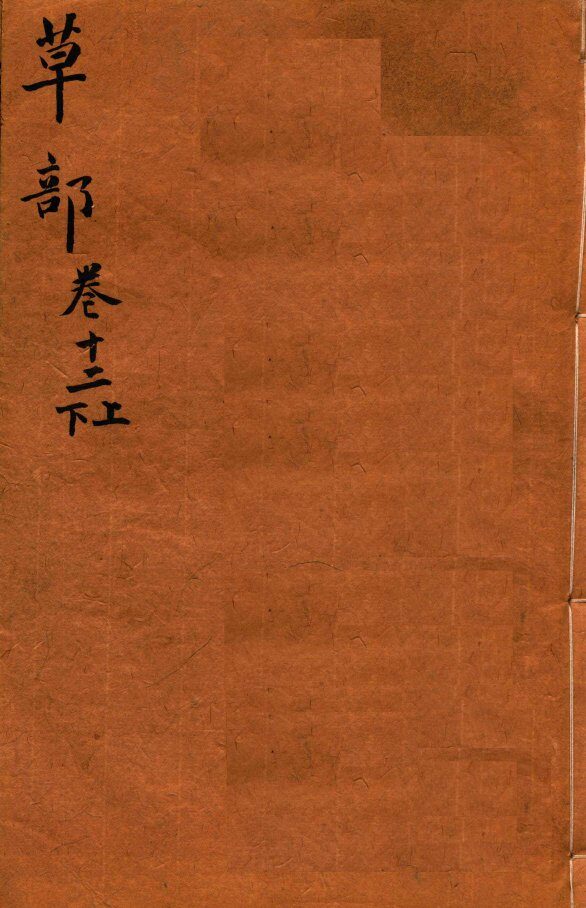 草部卷十二上下